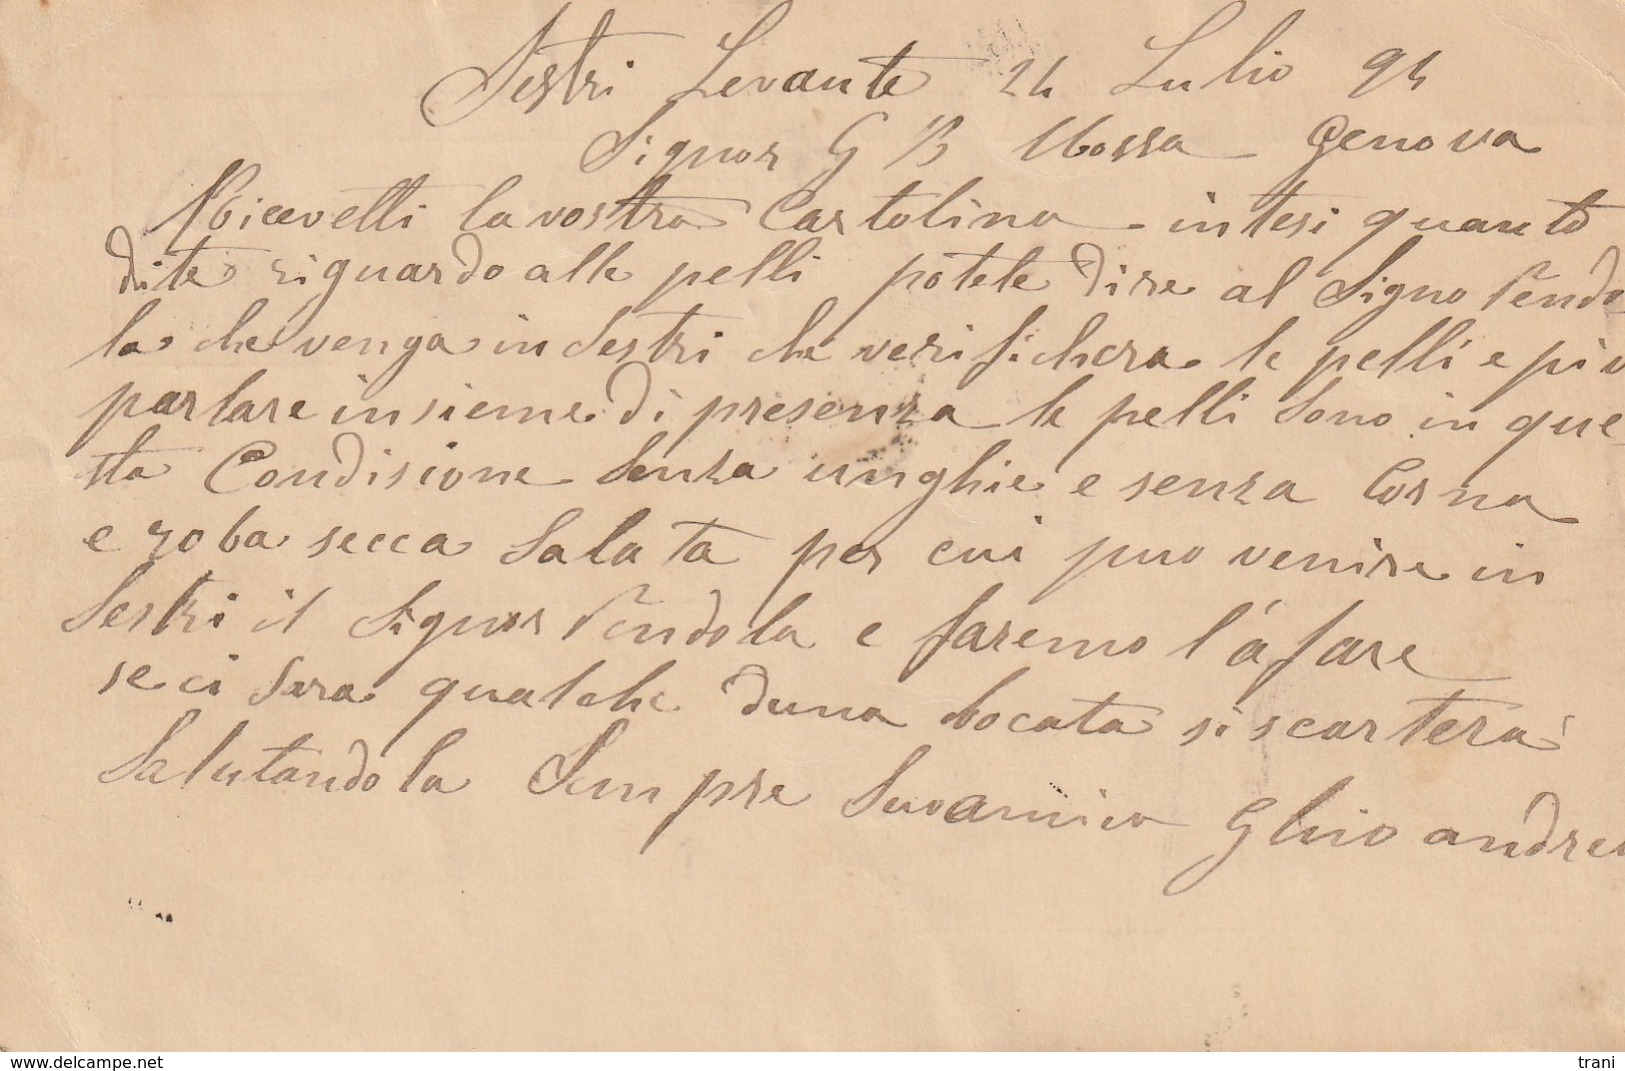 Sestri Levante 24 Lulio 94
Signor G B Mossa Genova
Ricevetti la vostra Cartolina - intesi quanto
dite riguardo alle pelli potete dire al Signo Pendo
la che venga in Sestri che verifichera le pelli e piu
parlare insieme di presenza le pelli Sono in que-
sta Condisione Senza unghie e senza Corna
e roba secca Salata per cui puo venire in
Sestri il Signor Pendola e faremo l'afare
se ci Sara qualche duna bocata si scarterà
Salutandola Sempre Suo amico Ghio andrea
www.delcampe.net
trani